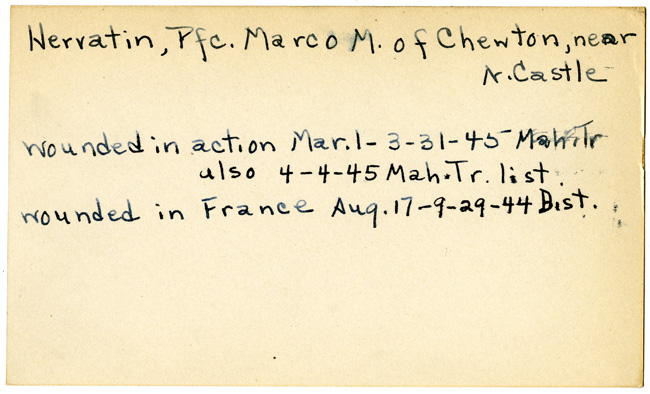 Nervatin, Pfc. Marco M. of Chewton, near
N. Castle
wounded in action Mar. 1 - 3-31-45 Mah. Tr
also 4-4-45 Mah. Tr. list.
wounded in France Aug. 17-9-29-44 Dist.